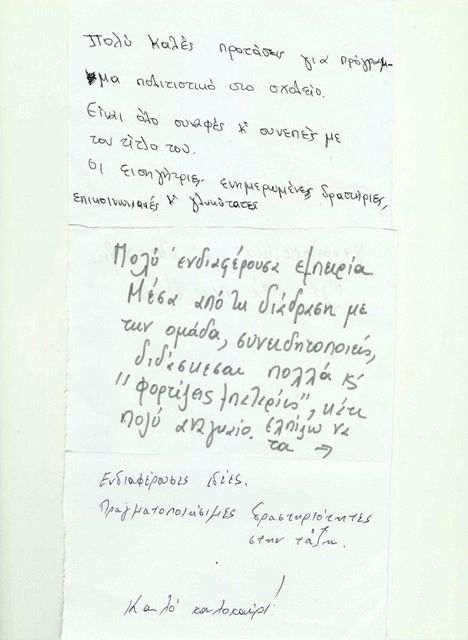 Πολύ καλές προτάσεις για πρόγραμ-
μα πολιτιστικό στο σχολείο.
Είναι όλο συναφές κ' συνεπές με
τον τίτλο του.
Οι εισηγήτριες ενημερωμένες, δραστήριες,
επικοινωνιακές κ' γλυκύτατες
Πολύ ενδιαφέρουσα εμπειρία
Μέσα από τη διάδραση με
την ομάδα, συνειδητοποιείς,
διδάσκεσαι πολλά κ'
"φορτίζεις μπαταρίες", κάτι
πολύ αναγκαίο. Ελπίζω να
τα →
Ενδιαφέρουσες ιδέες.
Πραγματοποιήσιμες δραστηριότητες
στην τάξη.
Καλό καλοκαίρι!